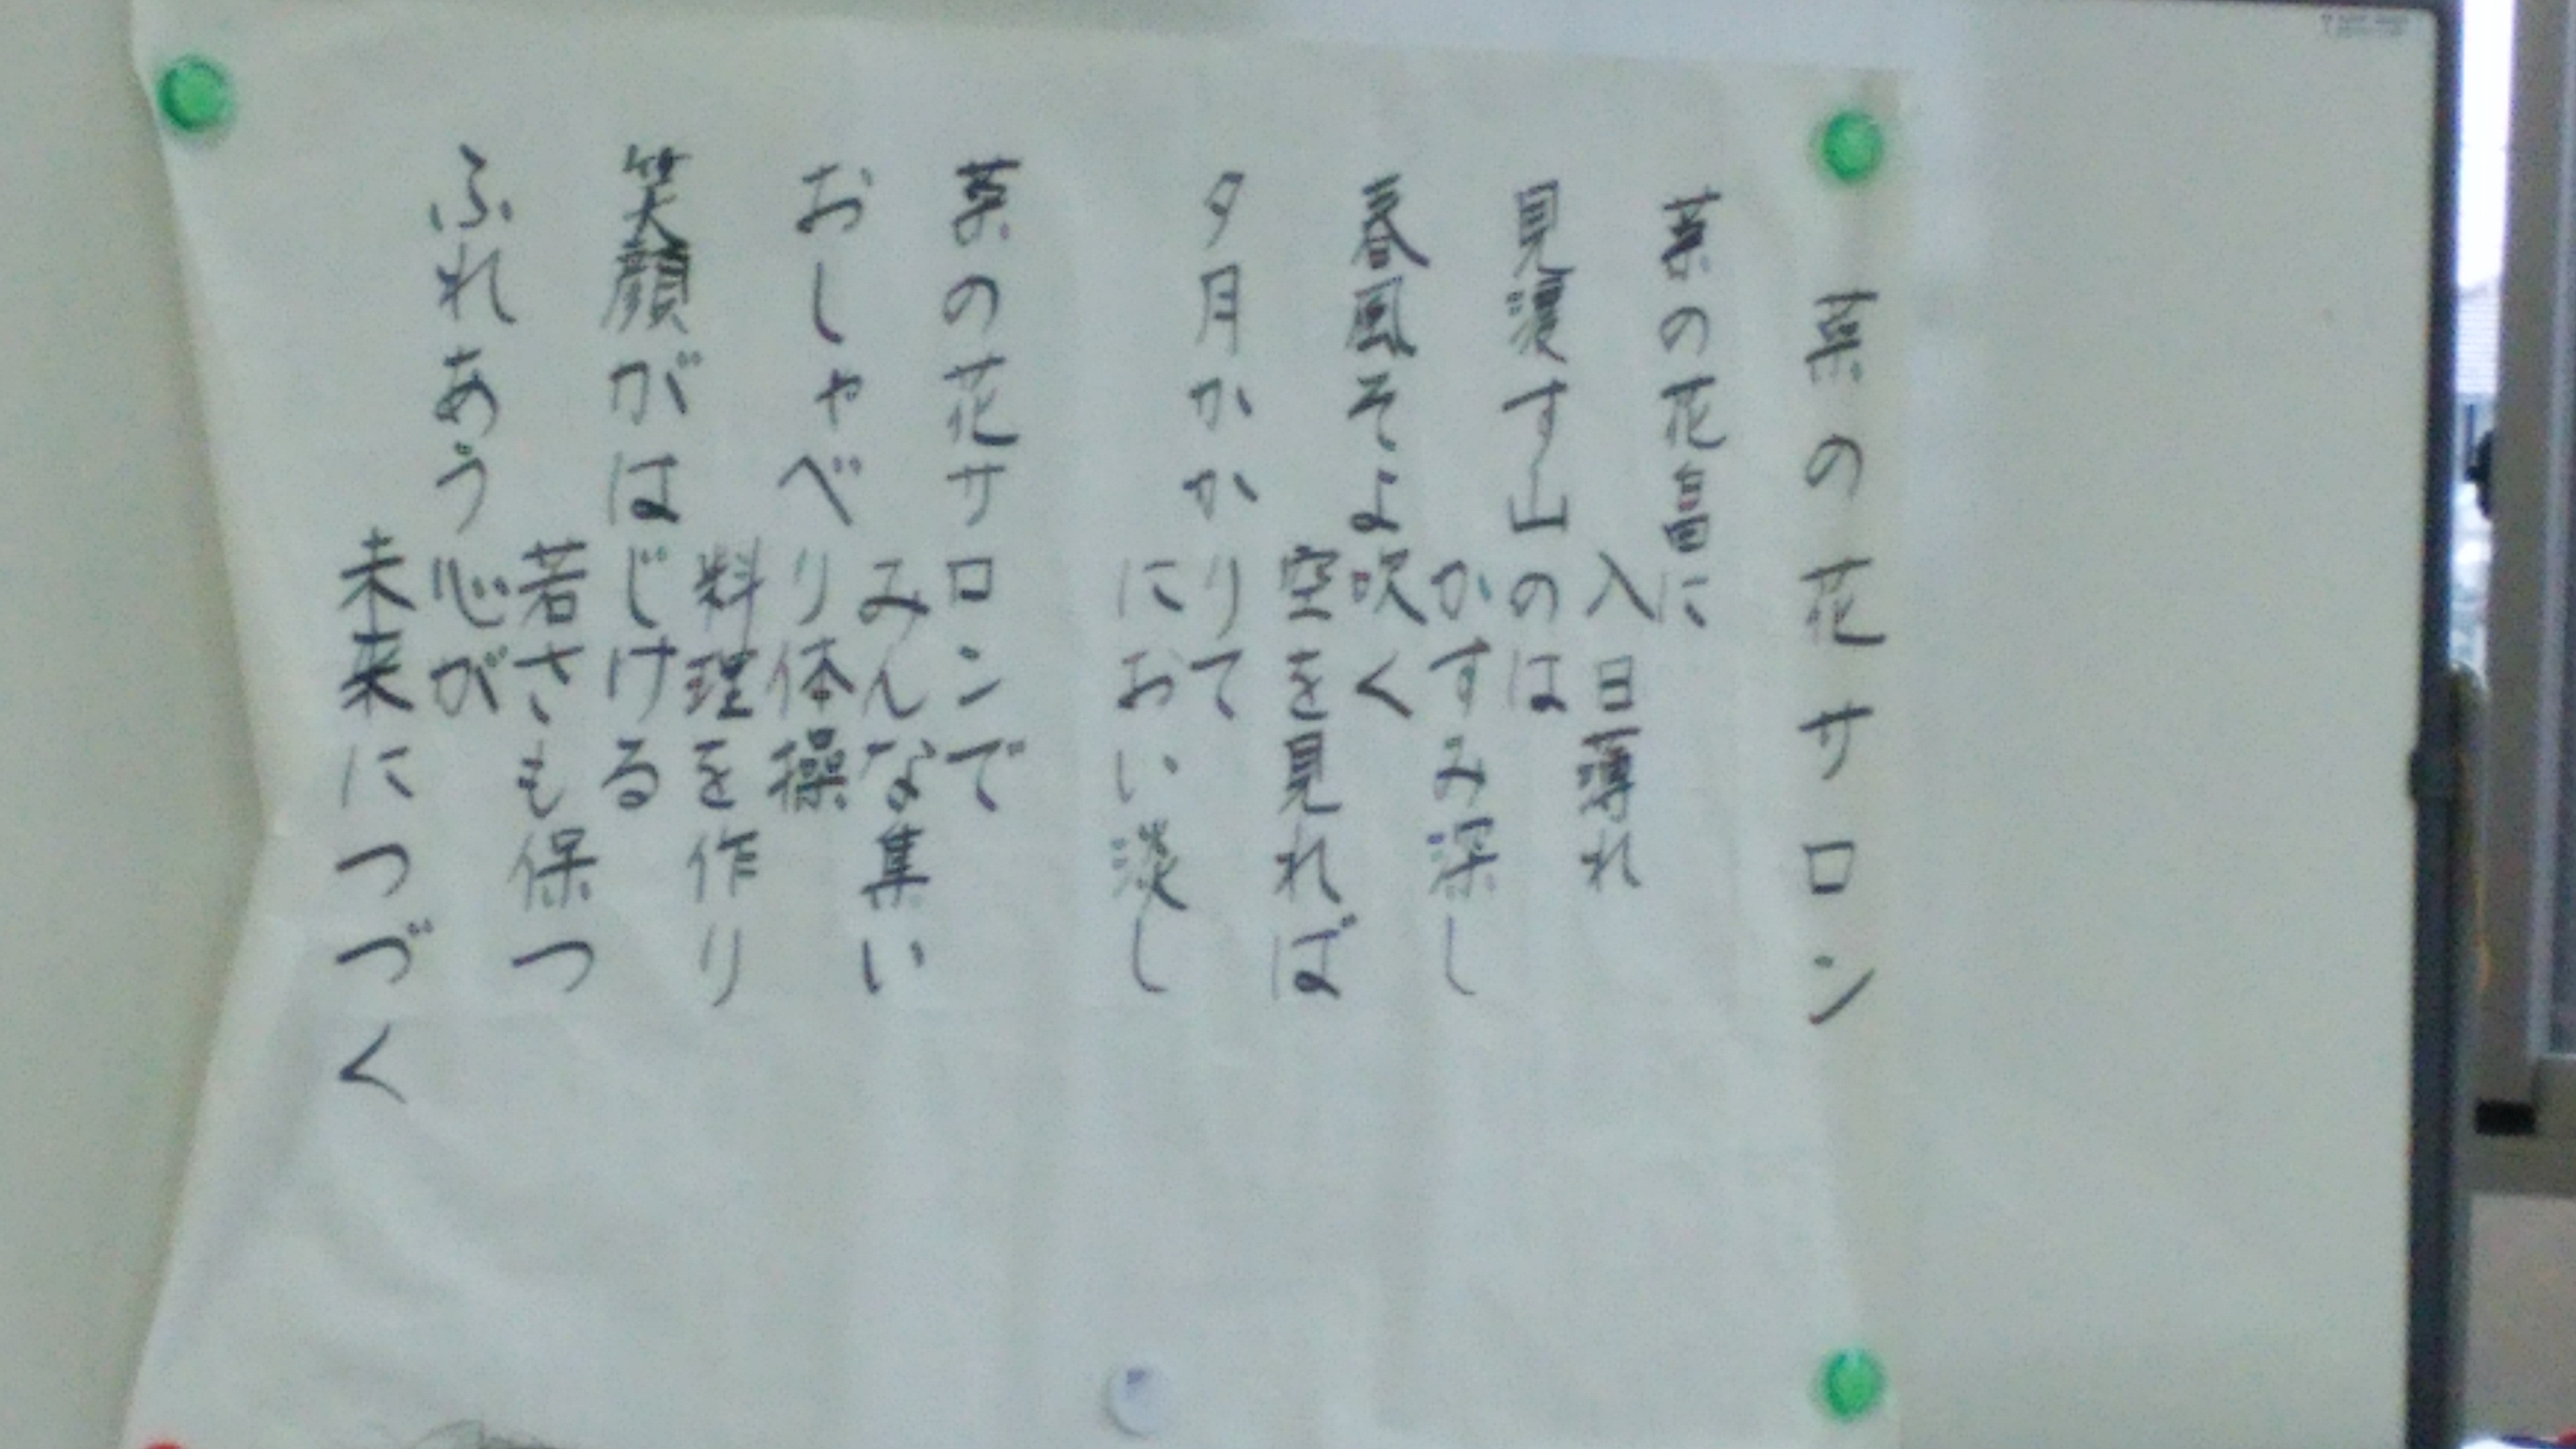 菜の花サロン
菜の花畠に
入日薄れ
見渡す山のは
かすみ深し
春風そよ吹く
空を見れば
夕月かかりて
におい淡し
菜の花サロンで
みんな集い
おしゃべり体操
料理を作り
笑顔がはじける
若さも保つ
ふれあう心が
未来につづく